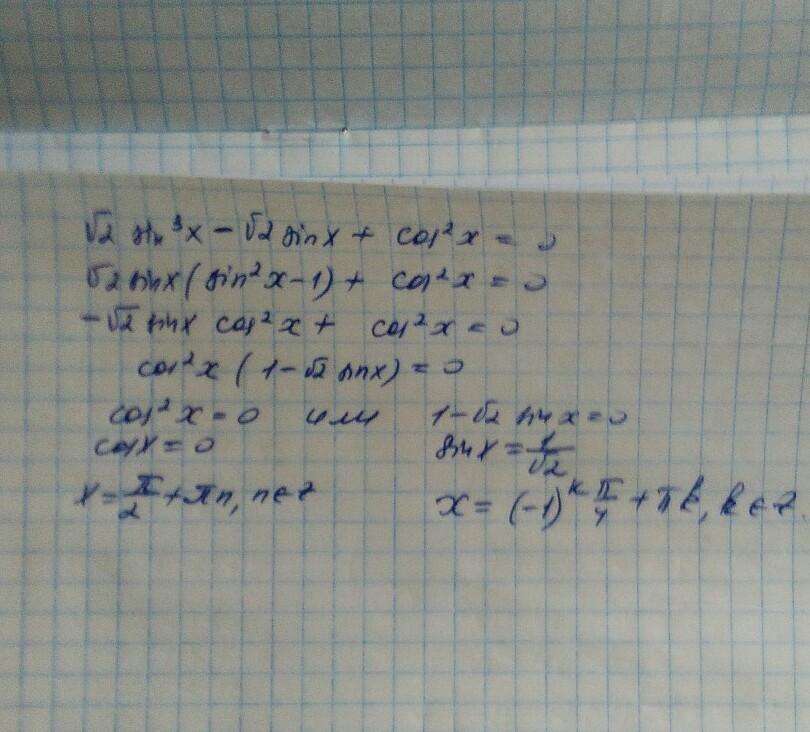 √2 sin³x − √2 sinx + cos²x = 0
√2 sinx (sin²x−1) + cos²x = 0
−√2 sinx cos²x + cos²x = 0
cos²x (1−√2 sinx) = 0
cos²x = 0 или 1−√2 sinx = 0
cosx = 0 sinx = 1/√2
x = π/2 + πn, n∈z x = (−1)ᵏ π/4 + πk, k∈z.